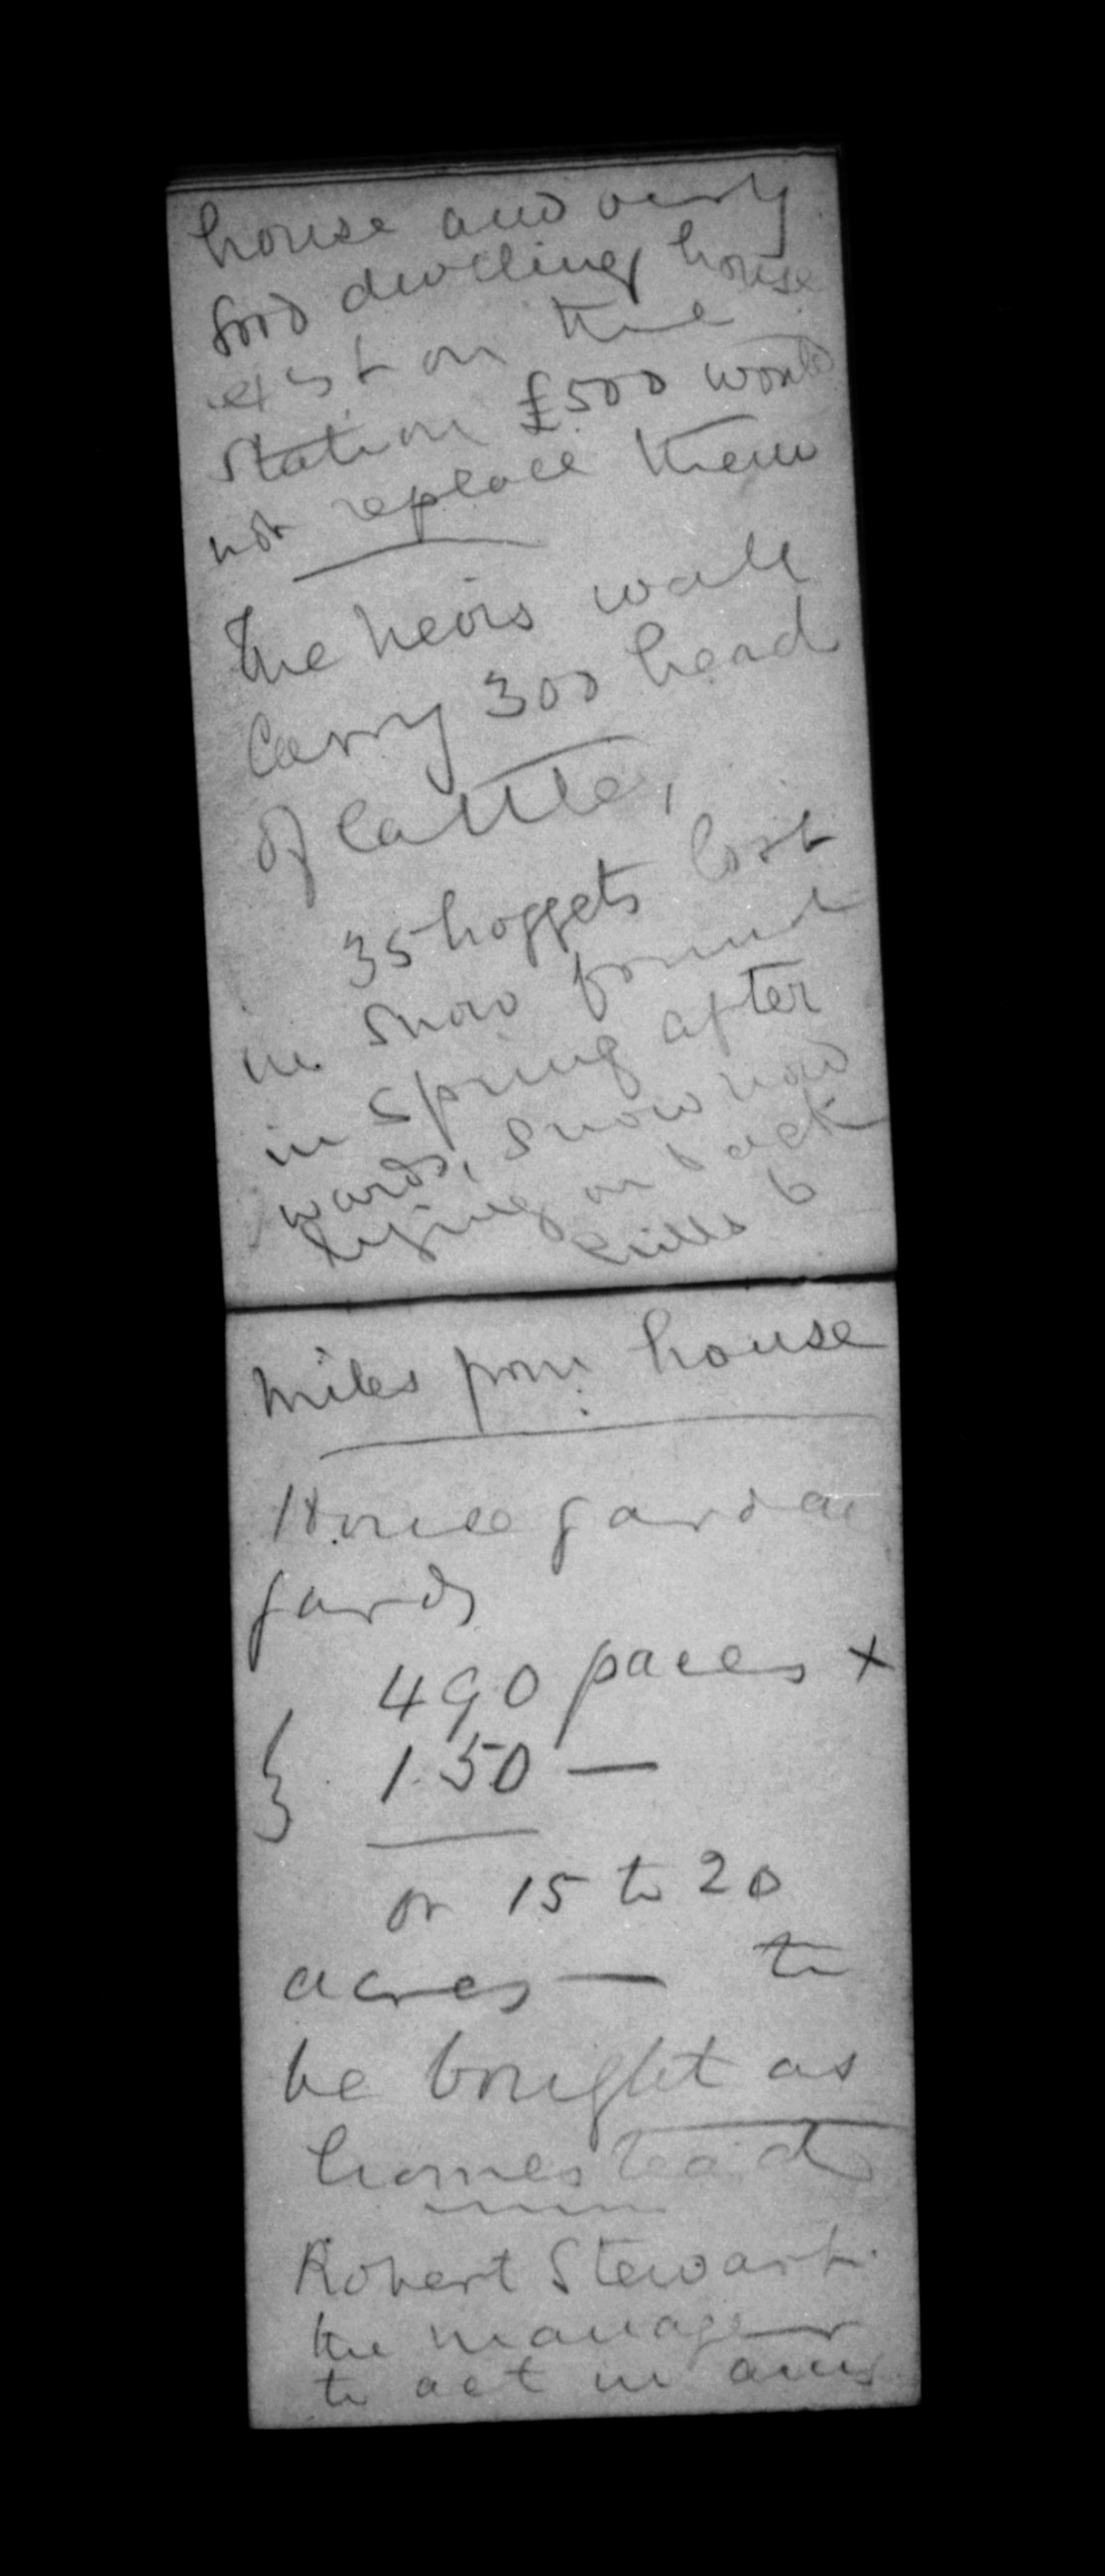 house and very
good dwelling house
exist on the
station £500 would
not replace them
The heirs walk
carry 300 head
of cattle,
35 hoggets lost
in snow found
in spring after
wards, snow now
lying on back
hills 6
miles from house
House garden
yards
490 paces x
150 —
or 15 to 20
acres — to
be bought as
homestead
Robert Stewart
the manager
to act in